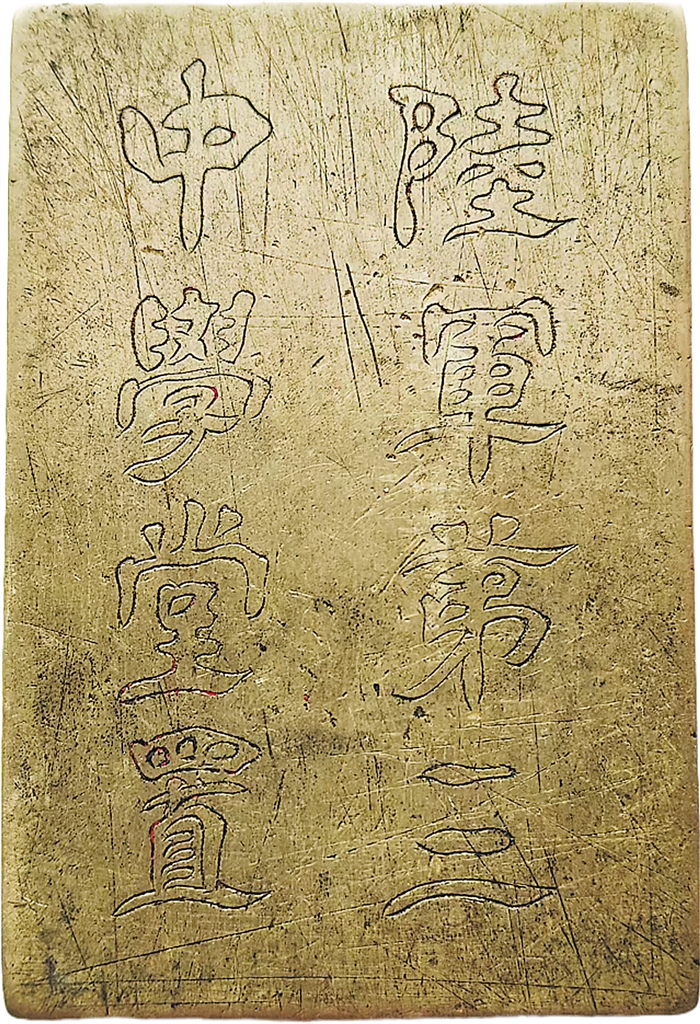 陸軍第三
中學堂置